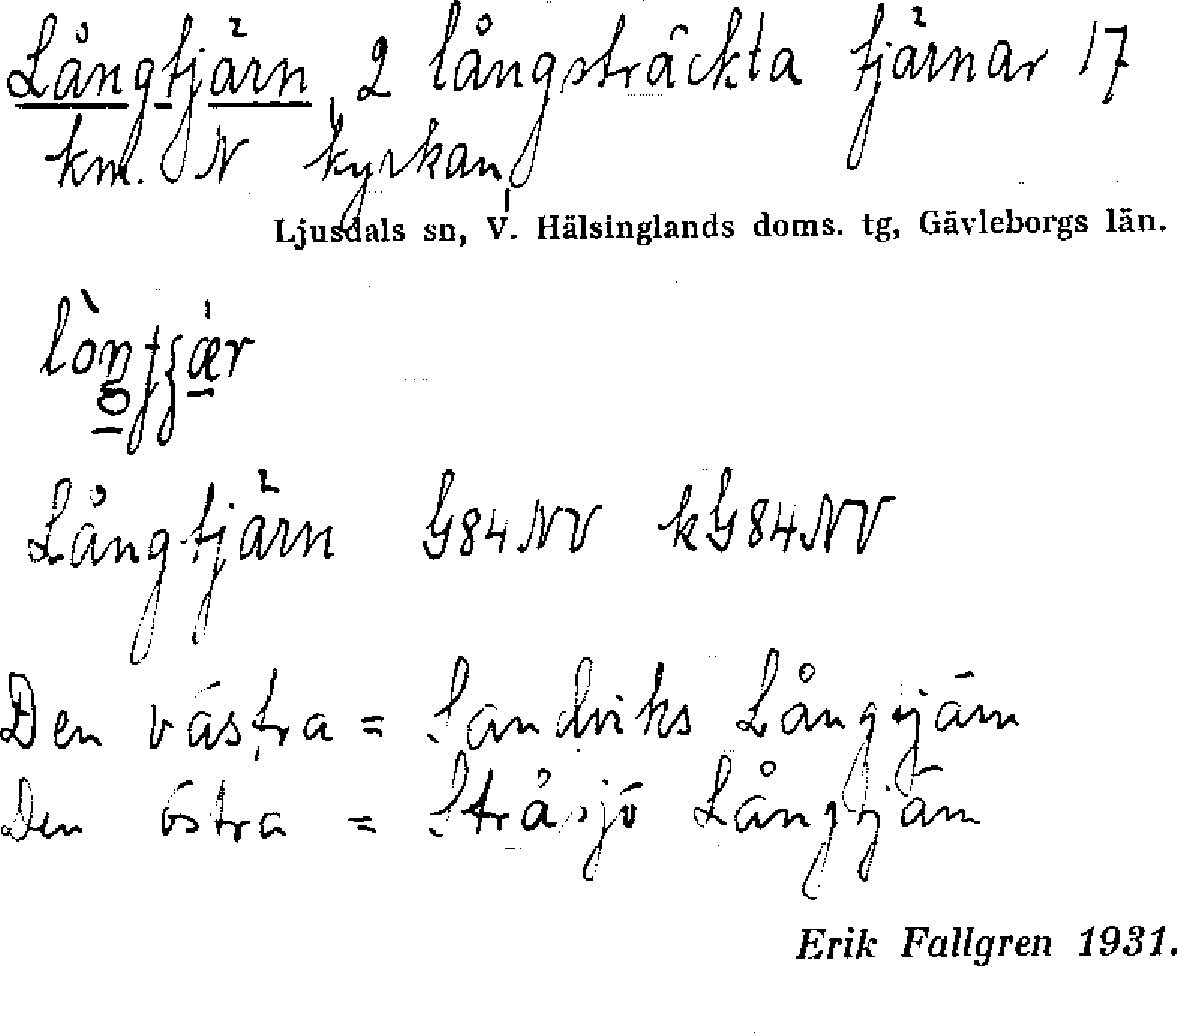 Långtjärn, 2 långsträckta tjärnar 17
km. N kyrkan
Ljusdals sn, V. Hälsinglands doms. tg, Gävleborgs län.
Långtjärn G84NV kG84NV
Den västra = Sandviks Långtjärn
Den östra = Stråsjö Långtjärn
Erik Fallgren 1931.